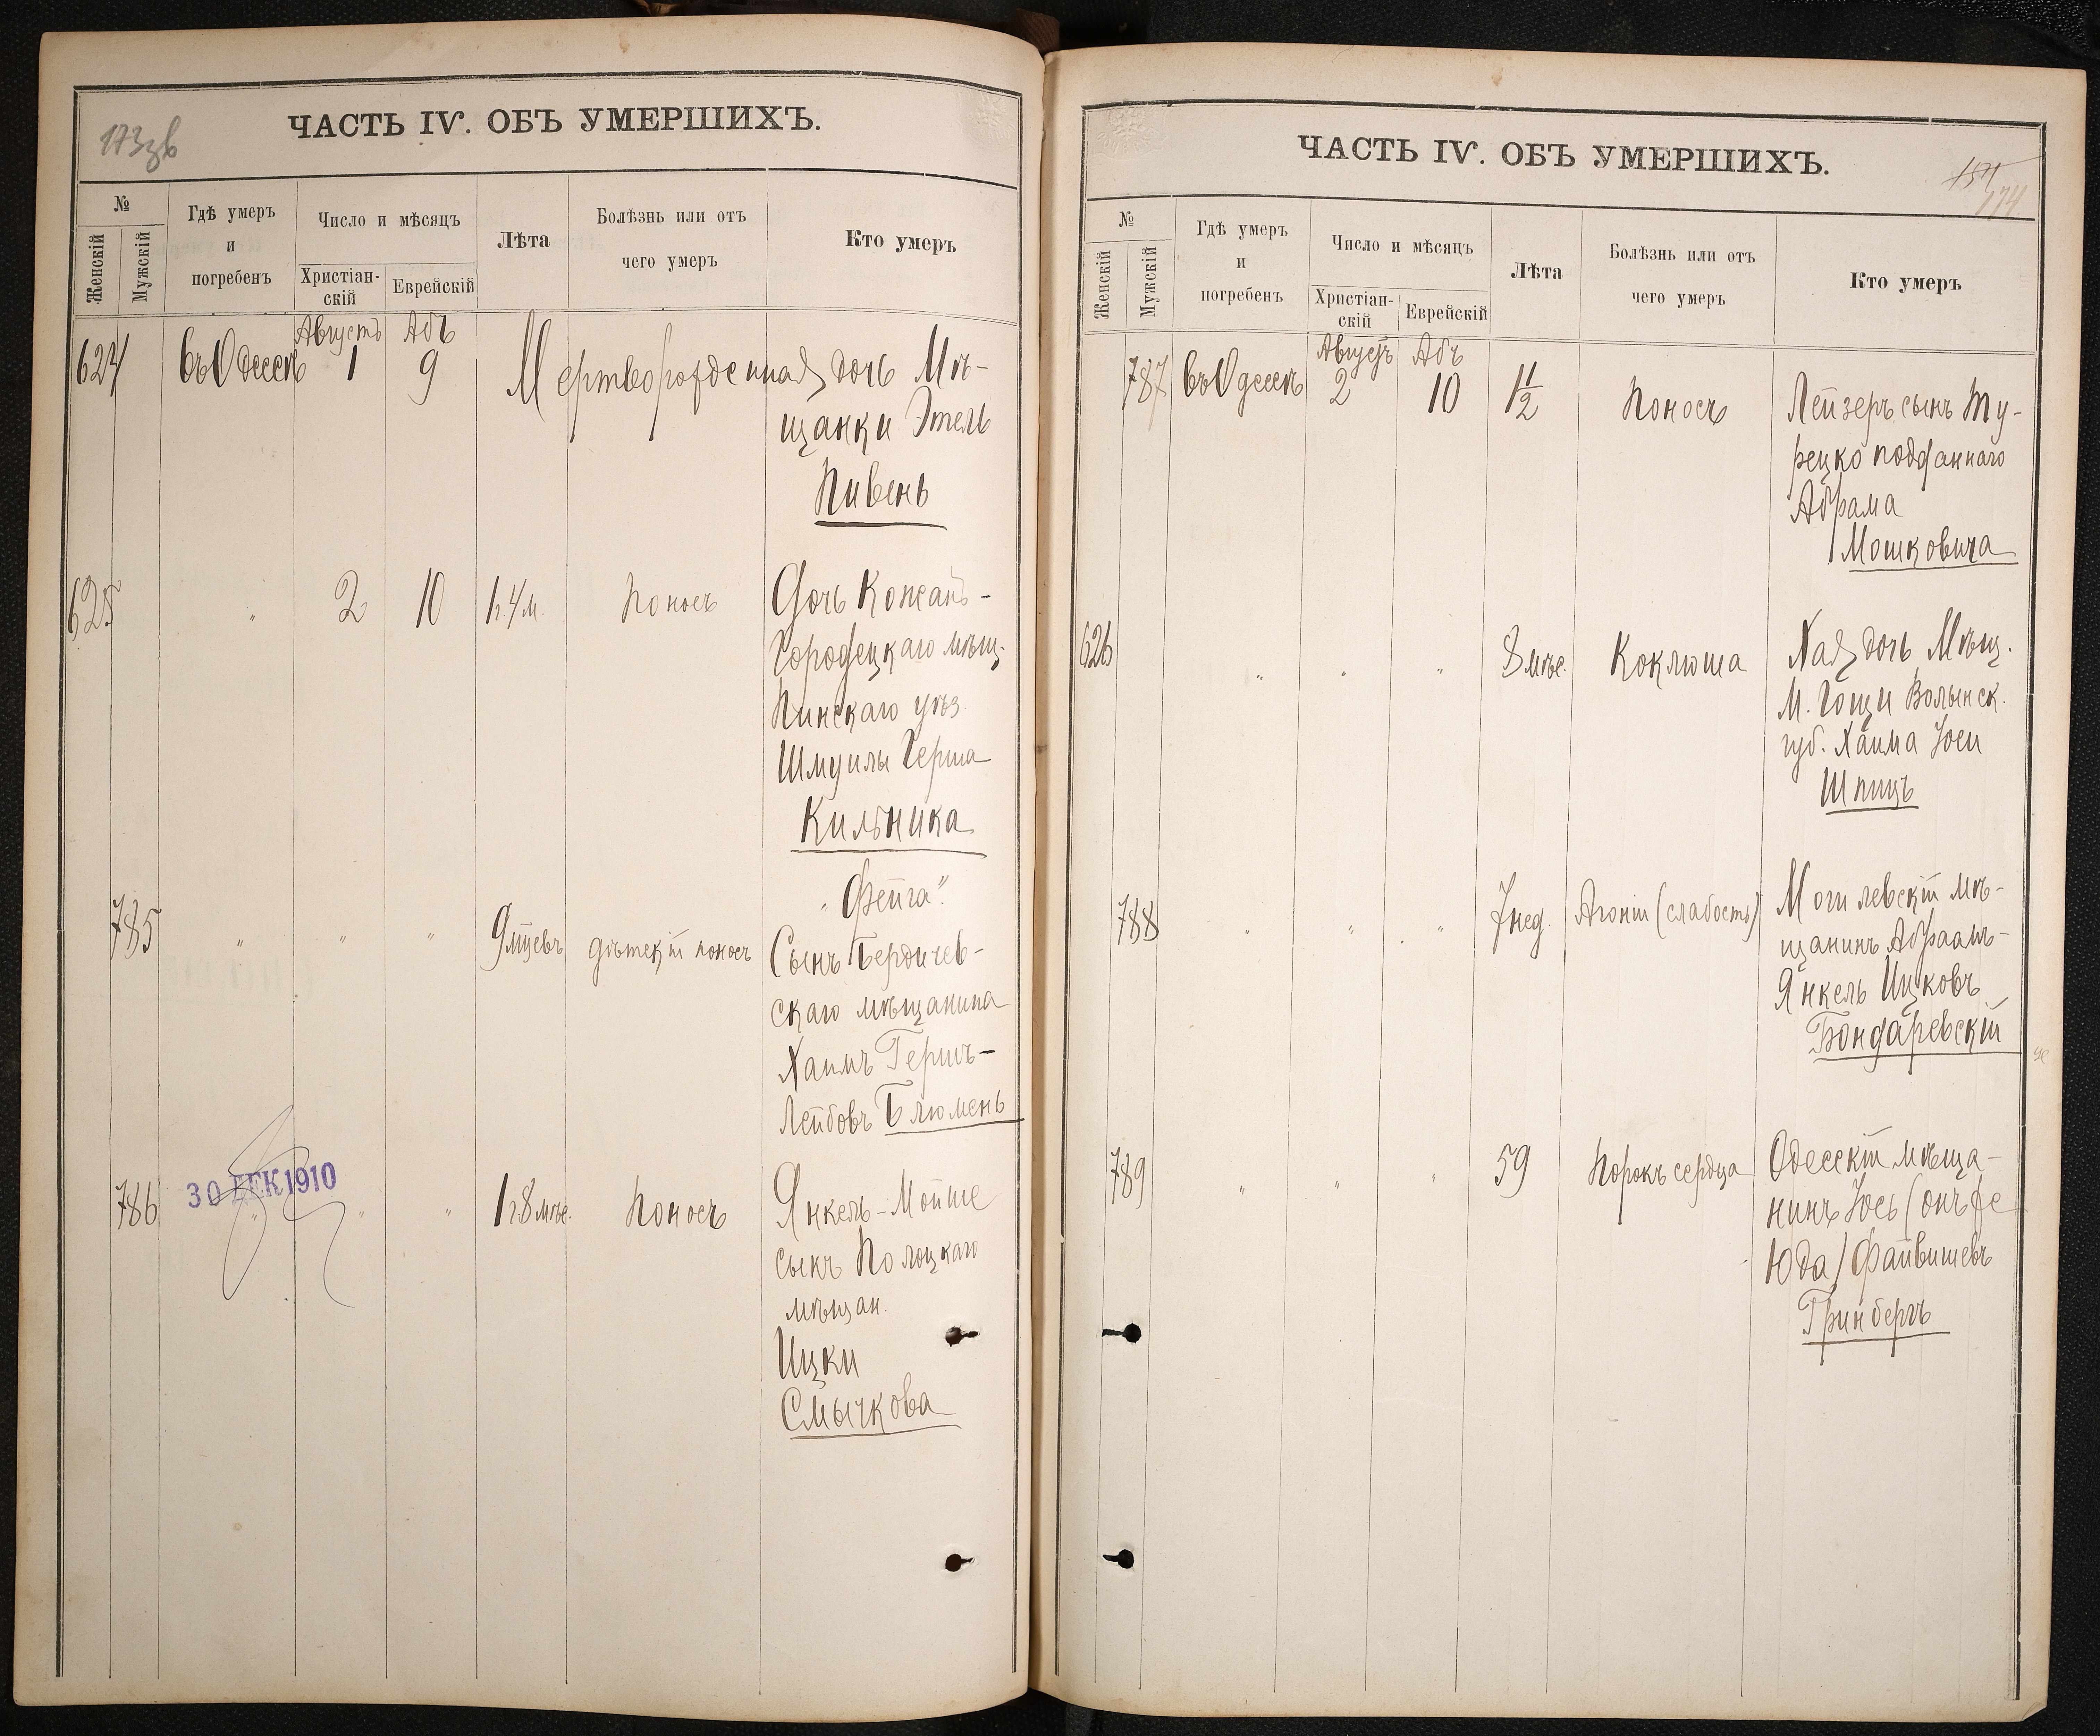 173зв
ЧАСТЬ IV. ОБЪ УМЕРШИХЪ.
№
Женскій
Мужскій
Гдѣ умеръ
и
погребенъ
Число и мѣсяцъ
Христіан-
скій
Еврейскій
Лѣта
Болѣзнь или отъ
чего умеръ
Кто умеръ
Августъ Абъ
624 въ Одессѣ 1 9 Мертворожденная дочь Мѣ-
щанки Этель
Пивень
625 " 2 10 1г.4м. Поносъ Дочь Кожанъ-
Городецкаго мѣщ.
Пинскаго уѣз.
Шмуилы Герша
Кильника
"Фейга".
785 " " " 9 мцевъ дѣтскій поносъ Сынъ Бердичев-
скаго мѣщанина
Хаимъ Гершъ-
Лейбовъ Блюмень
786 30 ДЕК 1910 " " " 1г.8мѣс. Поносъ Янкель-Мойше
сынъ Полоцкаго
мѣщан.
Ицки
Смычкова
ЧАСТЬ IV. ОБЪ УМЕРШИХЪ.
174
№
Женскій
Мужскій
Гдѣ умеръ
и
погребенъ
Число и мѣсяцъ
Христіан-
скій
Еврейскій
Лѣта
Болѣзнь или отъ
чего умеръ
Кто умеръ
Августъ Абъ
787 въ Одессѣ 2 10 1 1/2 Поносъ Лейзеръ сынъ Ту-
рецко подданнаго
Абрама
Мошковича
626 " " " 8 мѣс. Коклюша Хая дочь Мѣщ.
М. Гощи Волынск.
губ. Хаима Іоси
Шпицъ
788 " " " 7 нед. Агоніи (слабость) Могилевскій мѣ-
щанинъ Абраамъ-
Янкель Ицковъ
Бондаревскій
789 " " " 59 Порокъ сердца Одесскій мѣща-
нинъ Іось (онъ же
Юда) Файвишевъ
Гринбергъ